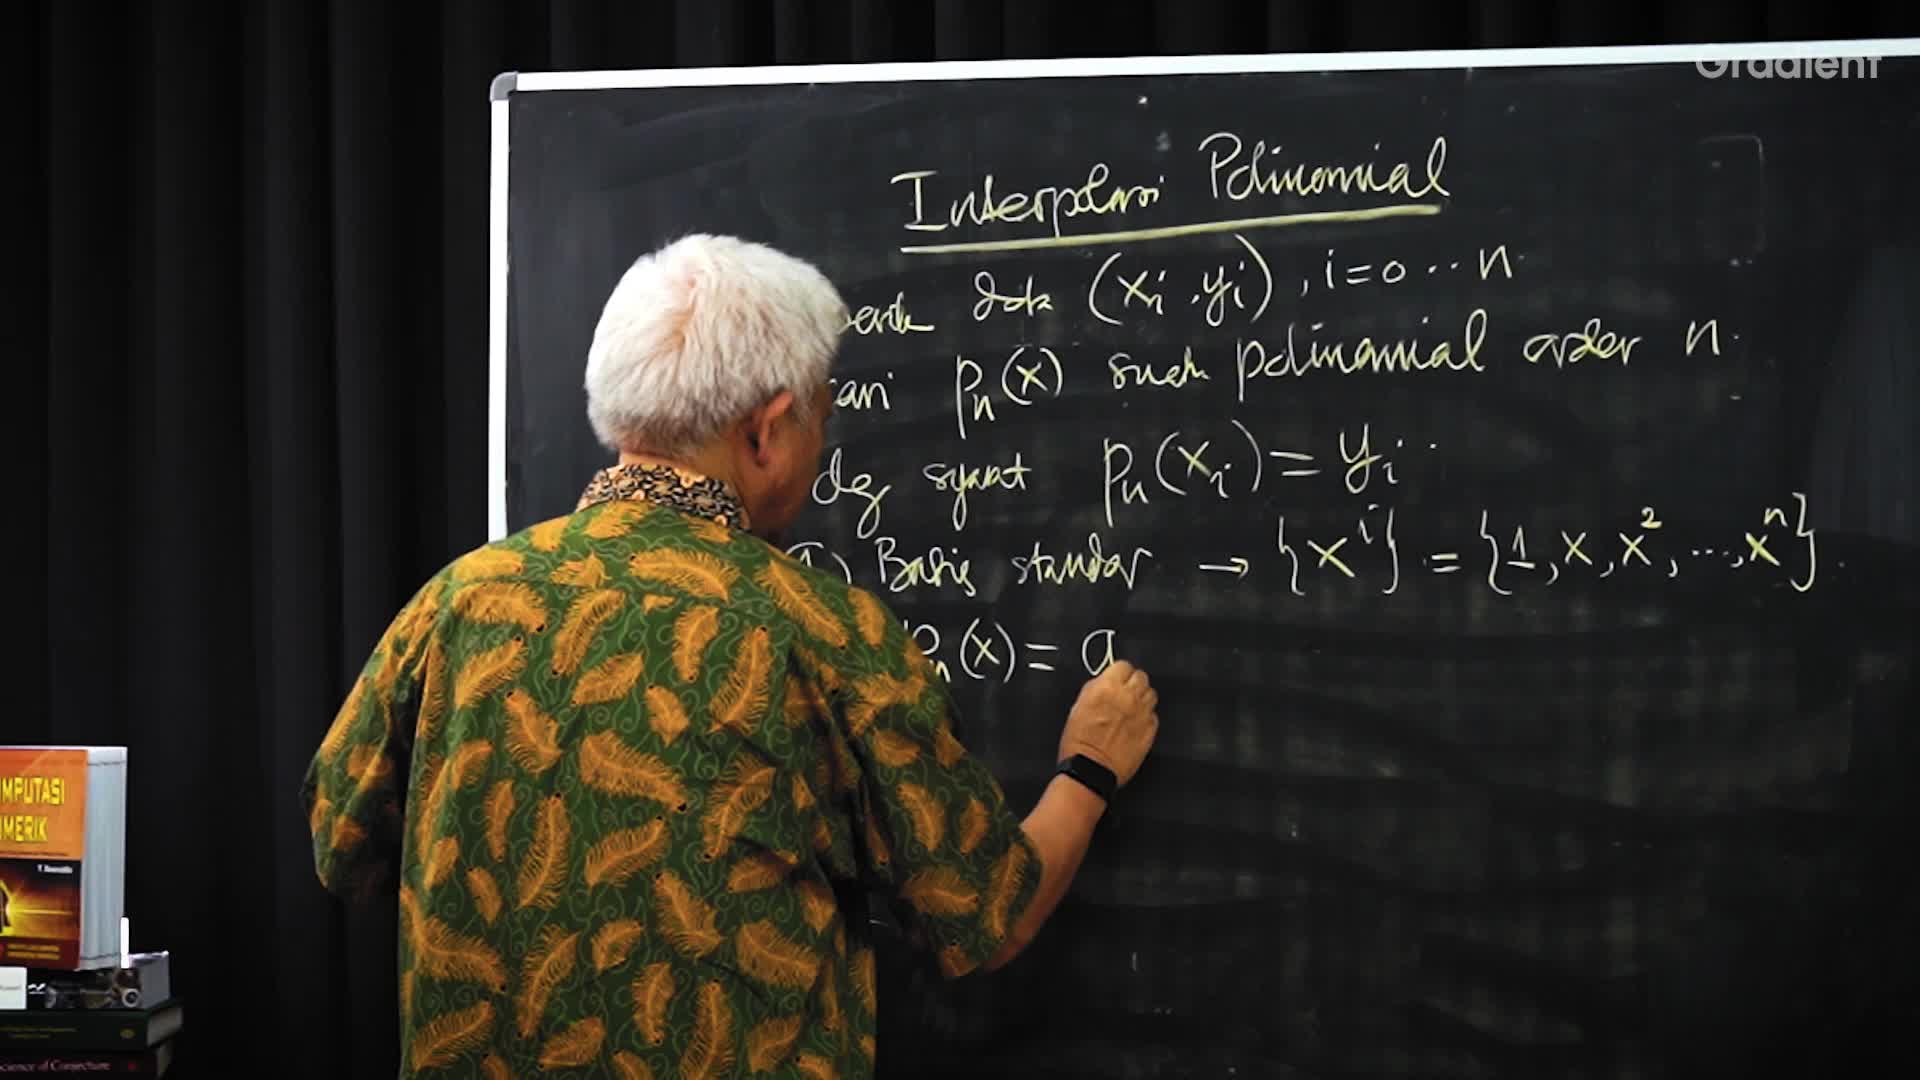 Gradient
Interpolasi Polinomial
berik data (xi, yi), i=0 ... n
cari pn(x) suatu polinomial order n.
dg syarat pn(xi) = yi
1) Basis standar → {x^i} = {1, x, x^2, ..., x^n}.
pn(x) = a
MPUTASI
MERIK
Science of Conjecture